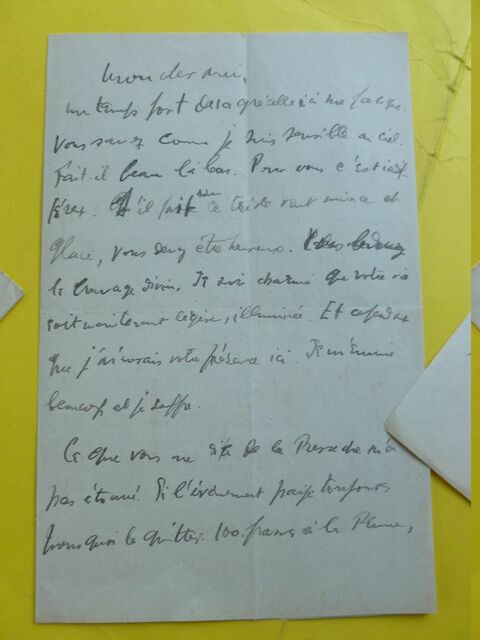 Mon cher ami,
un temps fort
Vous savez comme je suis sensible au ciel.
Fait-il beau là bas. Pour vous c'est
il fait ce triste vent mince et
glacé, vous devez être heureux.
le breuvage divin. Je suis charmé que votre vie
soit maintenant légère, illuminée. Et cependant
que j'aimerais votre présence ici. Je m'ennuie
beaucoup et je souffre.
Ce que vous me dites de la Presse ne m'a
pas étonné. Si l'événement paye toujours
pourquoi le quitter. 100 francs à la Plume,